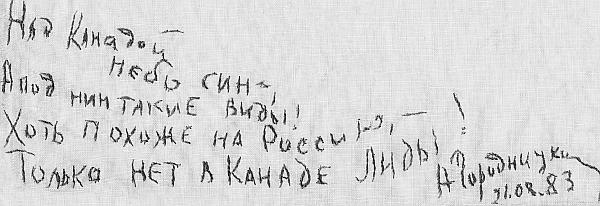 Над Канадой
небо син-
А под ним такие виды!
Хоть похоже на Россию, -
Только нет в Канаде Лиды!
А Городницкий
21.08.83